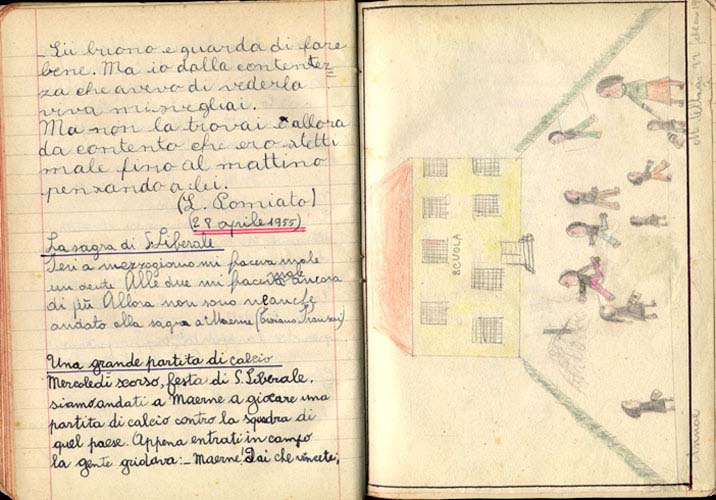 - Sii buono e guarda di fare
bene. Ma io dalla contentez=
za che avevo di vederla
viva mi svegliai.
Ma non la trovai e allora
da contento che ero stetti
male fino al mattino
pensando a lei.
(L. Pomiato)
(28 aprile 1955)
La sagra di S. Liberale
Ieri a mezzogiorno mi faceva male
un dente. Alle due mi faceva male ancora
di più. Allora non sono neanche
andato alla sagra a Maerne
Una grande partita di calcio
Mercoledì scorso, festa di S. Liberale,
siamo andati a Maerne a giocare una
partita di calcio contro la squadra di
quel paese. Appena entrati in campo
la gente gridava: - Maerne! Dai che vincete,
SCUOLA